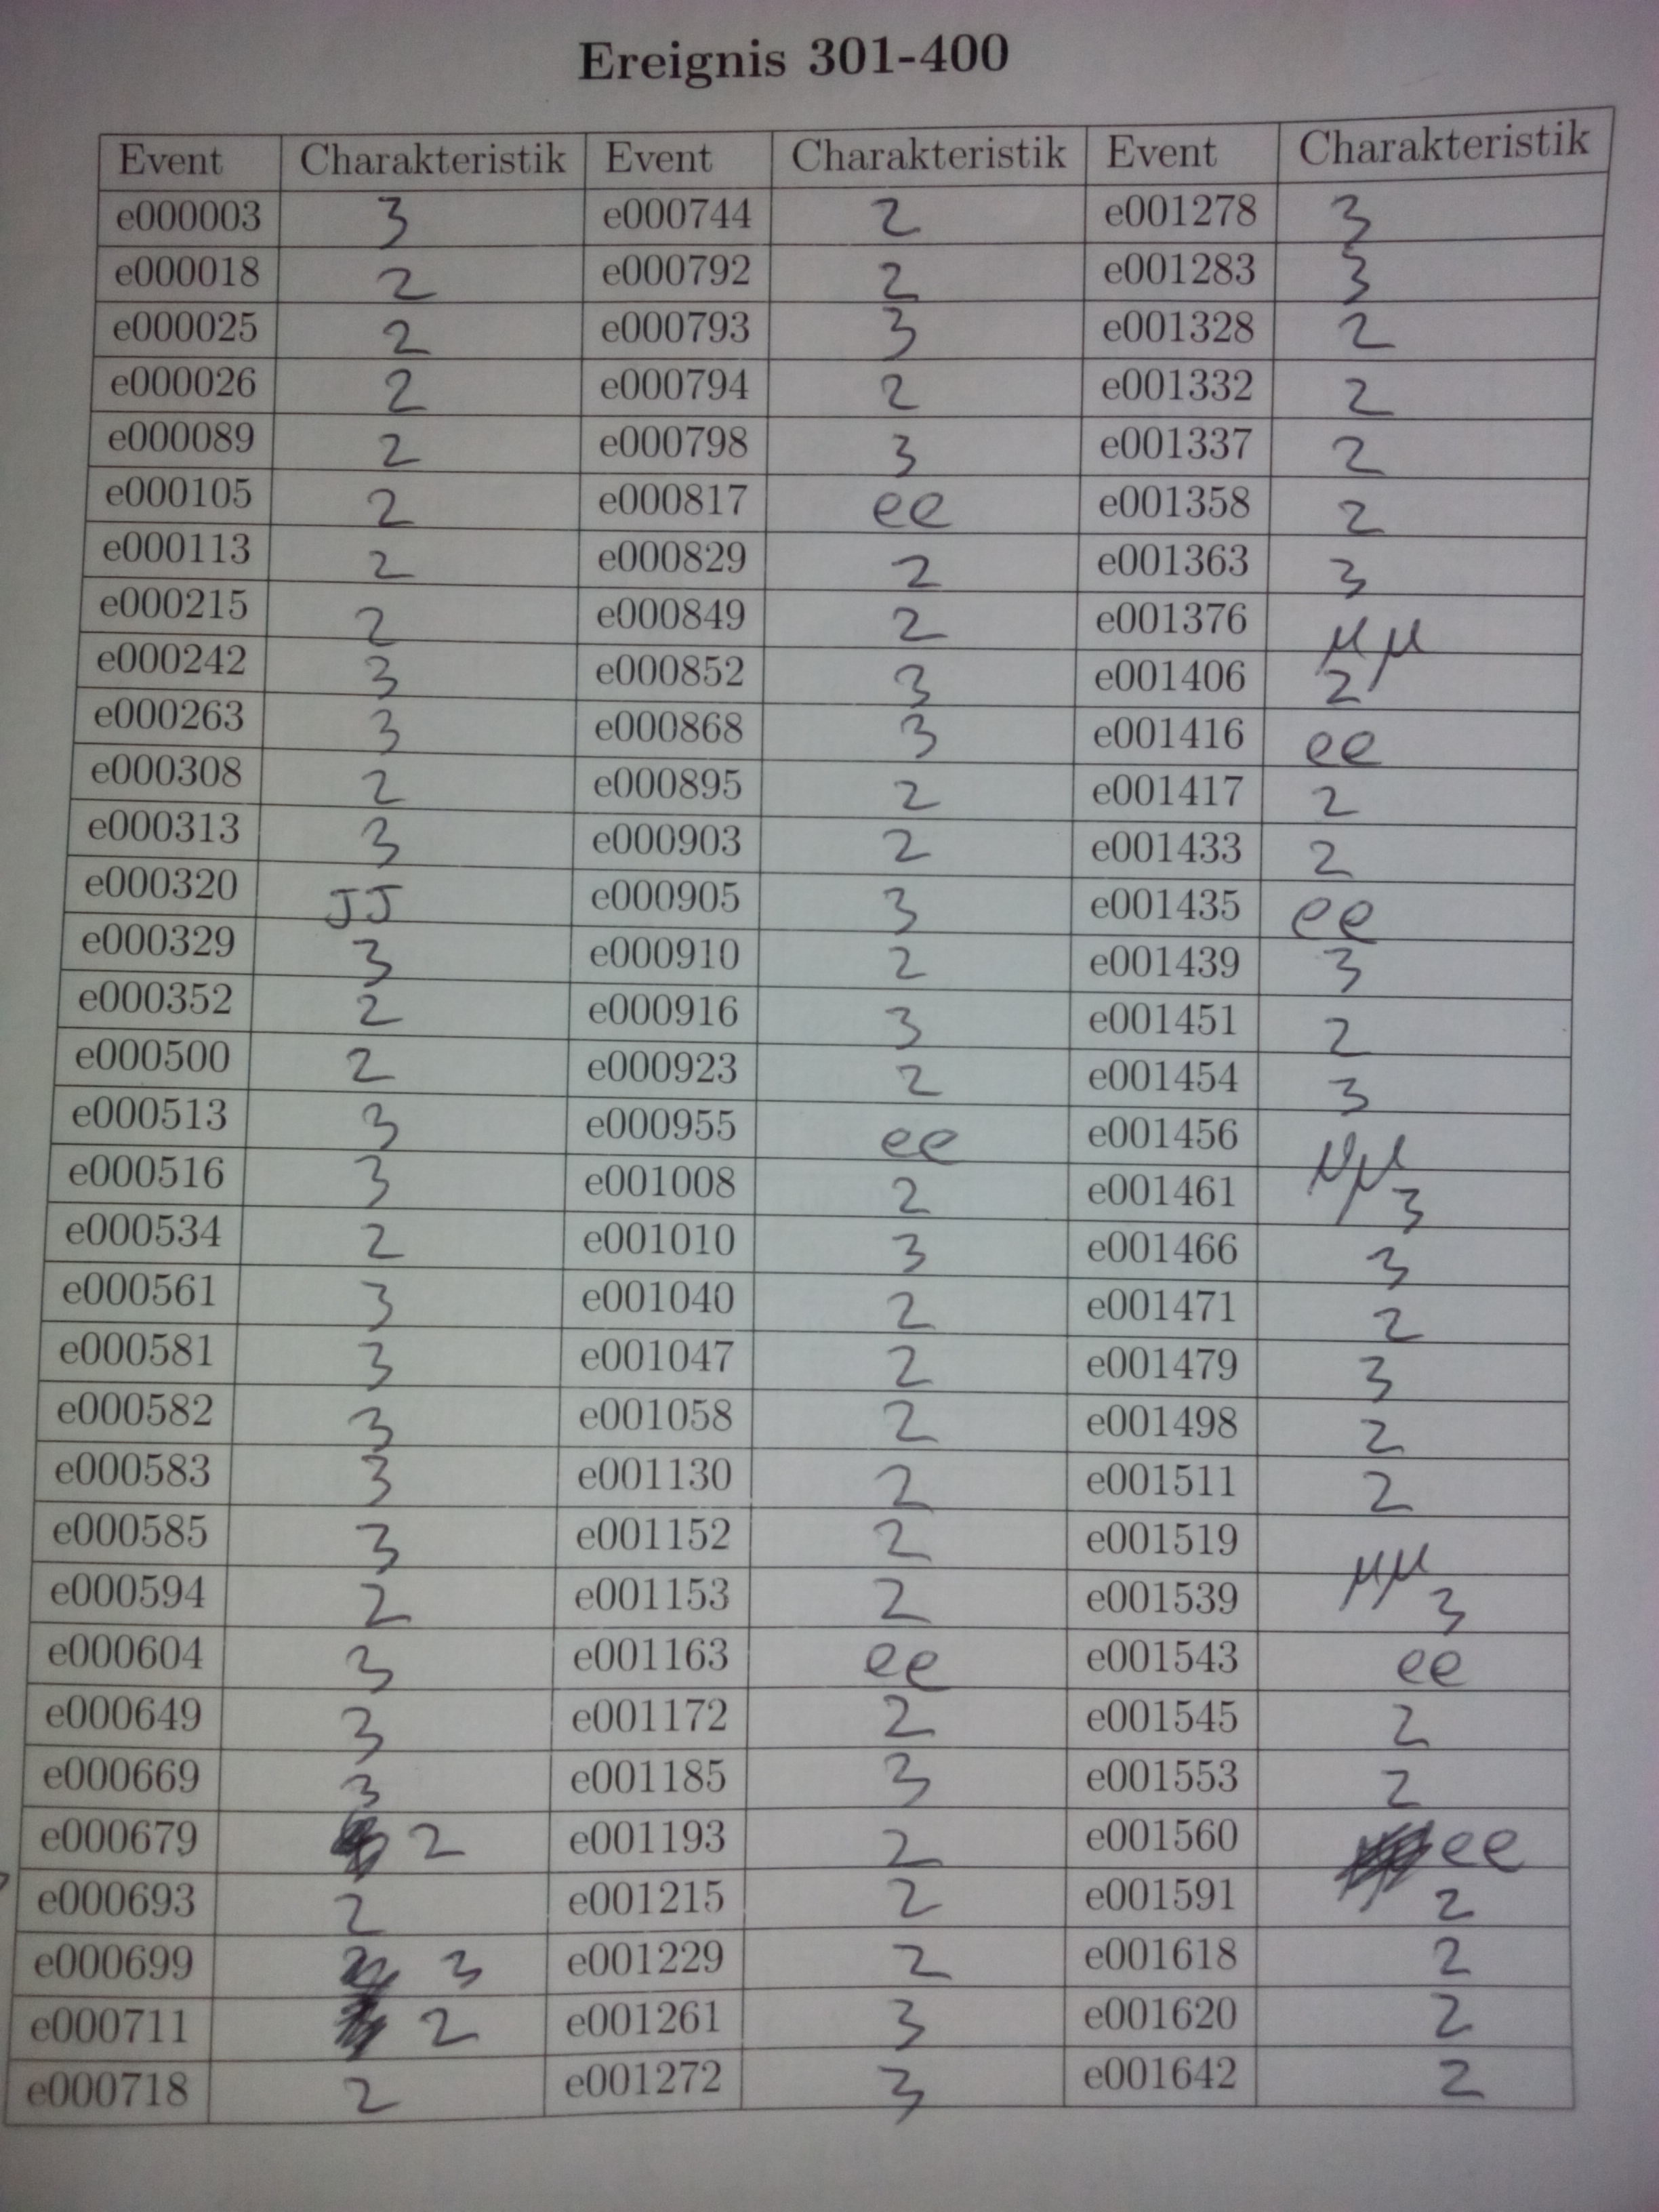 Ereignis 301-400
Event Charakteristik Event Charakteristik Event Charakteristik
e000003 3 e000744 2 e001278 3
e000018 2 e000792 2 e001283 3
e000025 2 e000793 3 e001328 2
e000026 2 e000794 2 e001332 2
e000089 2 e000798 3 e001337 2
e000105 2 e000817 ee e001358 2
e000113 2 e000829 2 e001363 3
e000215 2 e000849 2 e001376 μμ
e000242 3 e000852 3 e001406 2
e000263 3 e000868 3 e001416 ee
e000308 2 e000895 2 e001417 2
e000313 3 e000903 2 e001433 2
e000320 JJ e000905 3 e001435 ee
e000329 3 e000910 2 e001439 3
e000352 2 e000916 3 e001451 2
e000500 2 e000923 2 e001454 3
e000513 3 e000955 ee e001456 μμ
e000516 3 e001008 2 e001461 3
e000534 2 e001010 3 e001466 3
e000561 3 e001040 2 e001471 2
e000581 3 e001047 2 e001479 3
e000582 3 e001058 2 e001498 2
e000583 3 e001130 2 e001511 2
e000585 3 e001152 2 e001519 μμ
e000594 2 e001153 2 e001539 3
e000604 3 e001163 ee e001543 ee
e000649 3 e001172 2 e001545 2
e000669 3 e001185 3 e001553 2
e000679 2 e001193 2 e001560 ee
e000693 2 e001215 2 e001591 2
e000699 3 e001229 2 e001618 2
e000711 2 e001261 3 e001620 2
e000718 2 e001272 3 e001642 2